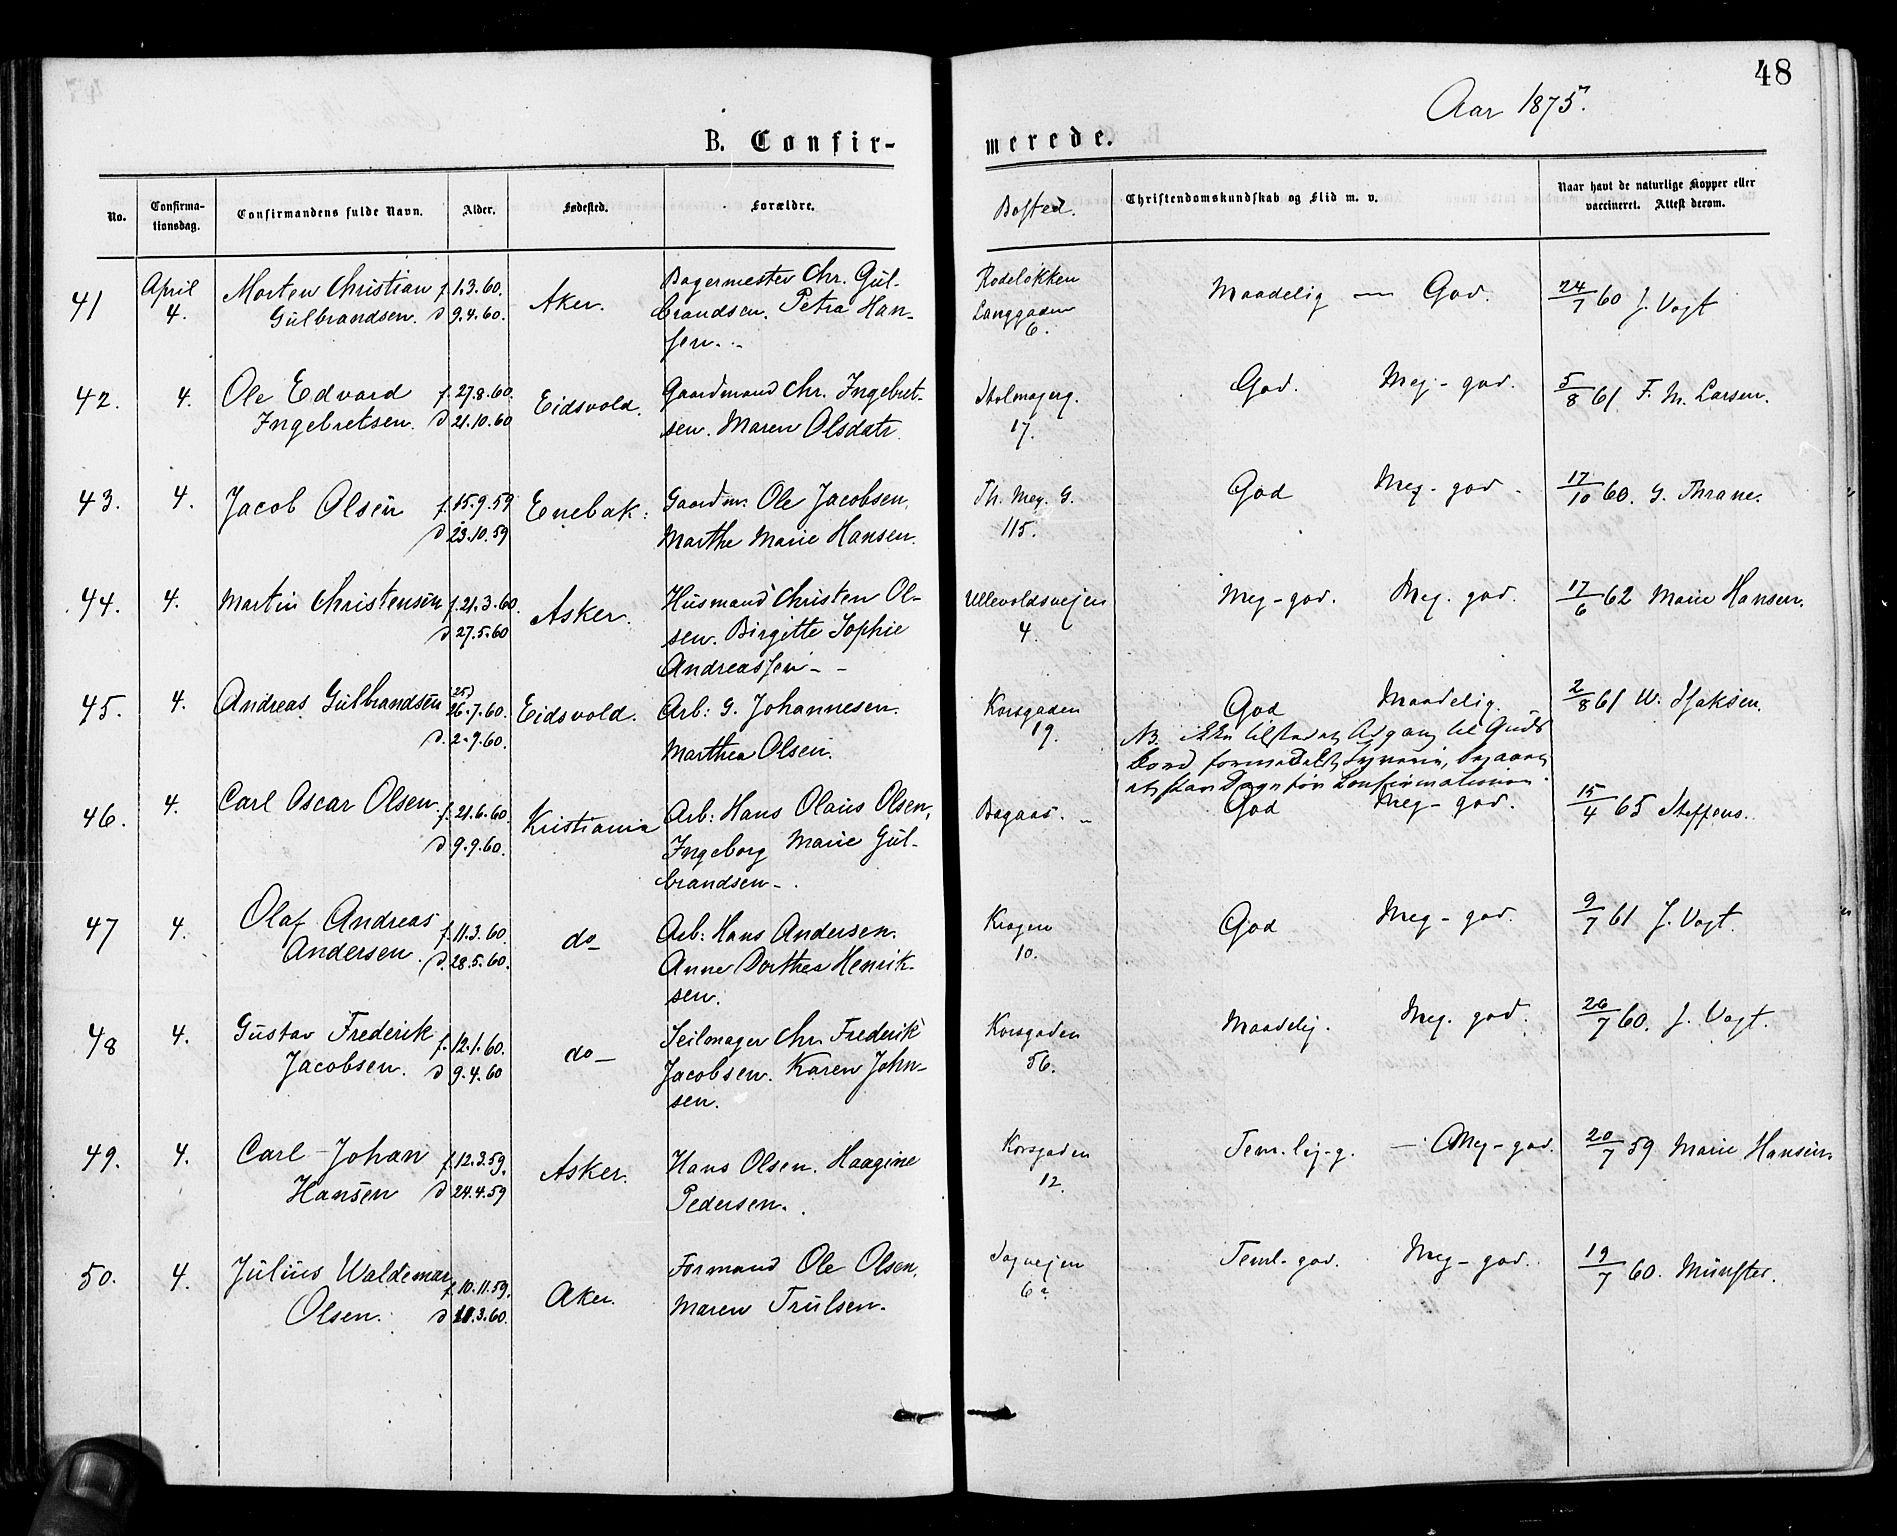 48
Aar 1875.
B. Confir-
merede.
No.
Confirma-
tionsdag.
Confirmandens fulde Navn.
Alder.
Fødested.
Forældre.
Bosted.
Christendomskundskab og Flid m. v.
Naar havt de naturlige Kopper eller
vaccineret. Attest derom.
41 April 4. Morten Christian f. 1.3.60. Aker. Bagermester Chr. Gul-
Gulbrandsen. d 9.4.60. brandsen. Petra Han-
sen.
Rodeløkken
Langgaden
6.
Maadelig — God.
24/7 60 J. Vogt
42. 4. Ole Edvard f. 27.8.60. Eidsvold. Gaardmand Chr. Ingebret-
Ingebretsen. d 21.10.60 sen. Maren Olsdatr.
Stolmagerg.
17.
God. Meg-god.
5/8 61. F. M. Larsen.
43. 4. Jacob Olsen f. 15.9.59 Enebak. Gaardm. Ole Jacobsen.
d 23.10.59 Marthe Marie Hansen.
Th. Mey. G.
115.
God Meg-god.
17/10 60. G. Thrane.
44. 4. Martin Christensen f. 21.3.60. Asker. Husmand Christen Ol-
d 27.5.60 sen. Birgitte Sophie
Andreassen
Ullevoldsvejen
4.
Meg-god. Meg. god.
17/6 62 Marie Hansen.
45. 4. Andreas Gulbrandsen 25) 26.7.60. Eidsvold. Arb: G. Johannesen.
d. 2.9.60. Marthea Olsen.
Korsgaden
19.
God Maadelig.
NB. Ikke tilstedet Adgang til Guds
Bord formedelst
Dage før Confirmationen.
2/8 61 W. Isaksen.
46. 4. Carl Oscar Olsen. f. 21.6.60. Kristiania Arb: Hans Olaus Olsen,
d 9.9.60. Ingeborg Marie Gul-
brandsen.
Bagaas.
God Meg-god.
15/4 65 Steffens.
47 4. Olaf Andreas f. 11.3.60. do Arb: Hans Andersen.
Andersen d. 28.5.60. Anne Dorthea Henrik-
sen.
Krogen
10.
God Meg-god.
9/7 61 J. Vogt.
48 4. Gustav Frederik f. 12.1.60. do Seilmager Chr. Frederik
Jacobsen. d 9.4.60 Jacobsen. Karen John-
sen.
Korsgaden
56.
Maadelig. Meg. god.
26/7 60. J. Vogt.
49. 4. Carl Johan f. 12.3.59. Asker. Hans Olsen. Haagine
Hansen d 24.4.59 Pedersen.
Korsgaden
12.
Tem.lig-g. — Meg-god.
20/7 59 Marie Hansen.
50. 4. Julius Waldemar f. 10.11.59. Aker. Formand Ole Olsen,
Olsen. d 11.3.60. Maren Trulsen.
Sagvejen
6a
Teml-god. Meg-god.
19/7 60. Münster.